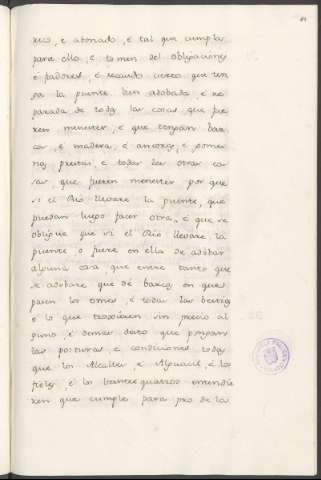 xeco, e abonado, é tal que cumpla
para ello, é tomen del obligaciones
é fiadores, é recaudo cierto que ten
ga la puente bien adobada, e re
parada de todas las cosas que fue
ren menester, é que tengan Bar
cas, é madera, é
, e todas las otras co
sas, que fueren menester por que
si el Rio llevare la puente, que
puedan luego facer otra, é que se
obligue que si el Rio llevare la
puente o fuere en ella de adobar
alguna cosa que entre tanto que
se adobare que dé barcas en que
pasen los omes, é todas las bestias
é lo que troxieren sin precio al
guno, é demas desto que pongan
las posturas, é condiciones todas
que los Alcalles, é Alguacil, é los
fieles, é los veintequatros entendie
ren que cumple para pro de la